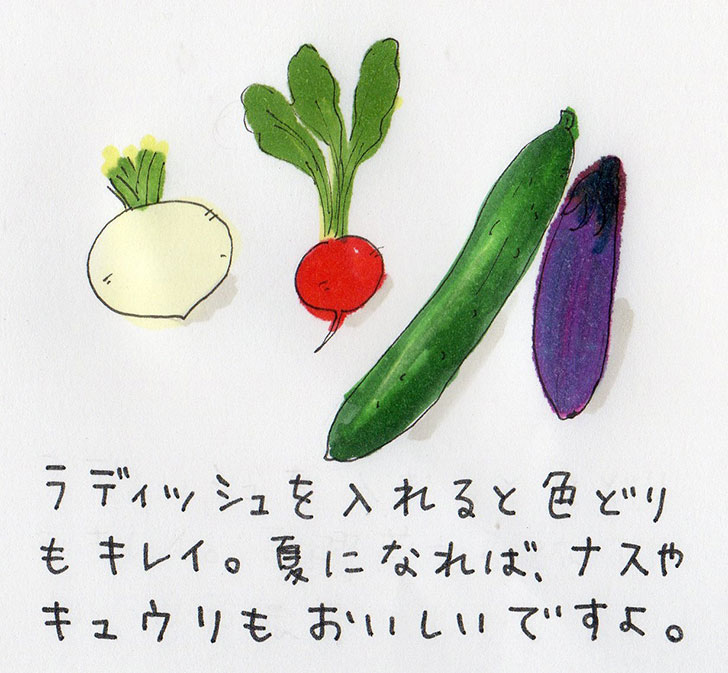 ラディッシュを入れると色どり
もキレイ。夏になれば、ナスや
キュウリもおいしいですよ。